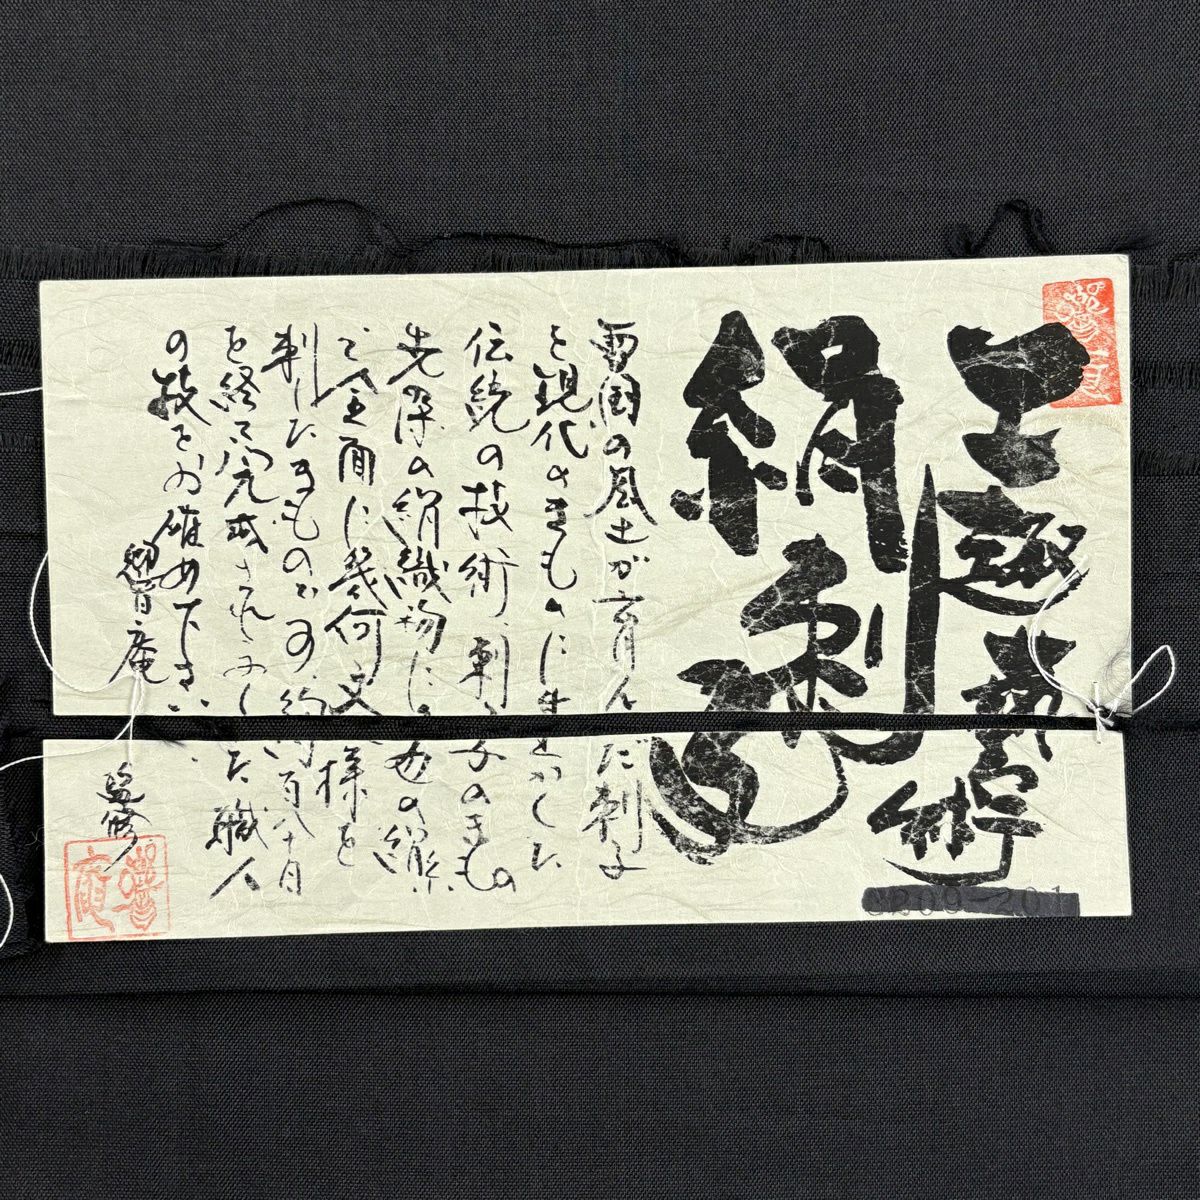 工趣藝術
絹刺子
雪国の風土が育んだ刺子
を現代のきものに生かした
伝統の技術、刺し子のきもの。
先染の絹織物に の絹糸
で全面に幾何文様を
刺したきものです 約 百八十日
を経て完成されました職人
の技をお確め下さい
庵 監修
209-201